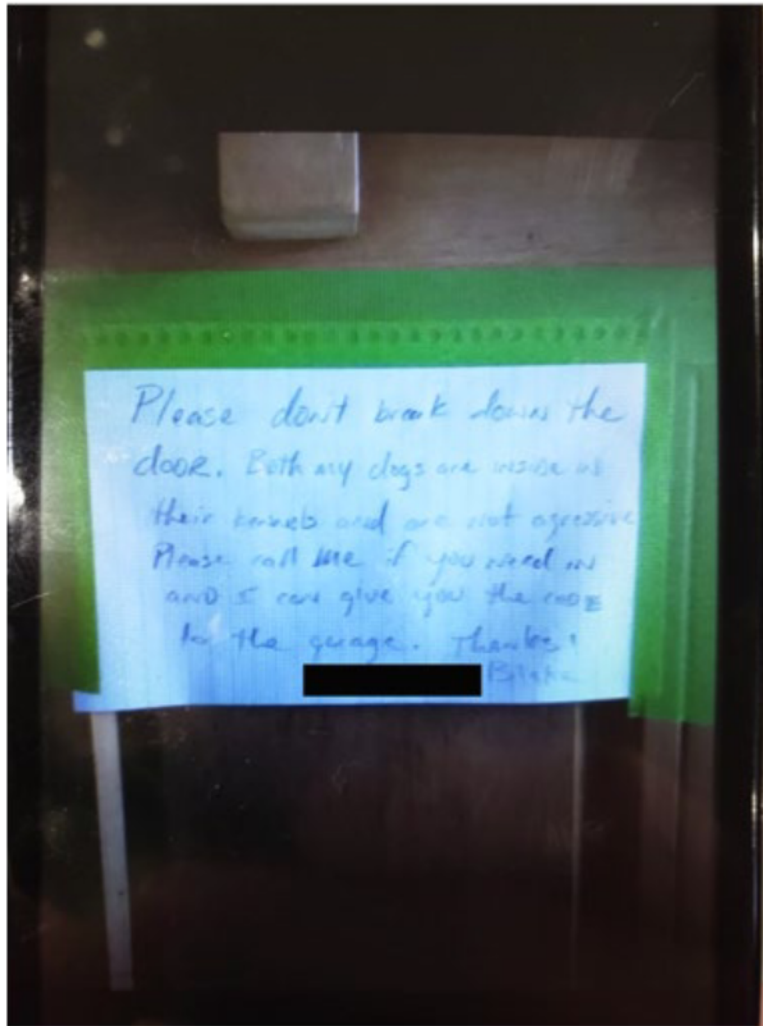 Please don't break down the
dooR. Both my dogs are inside in
their kennels and are not agressive
Please call me if you need in
AND I can give you the codE
to the garage. Thanks!
Blake